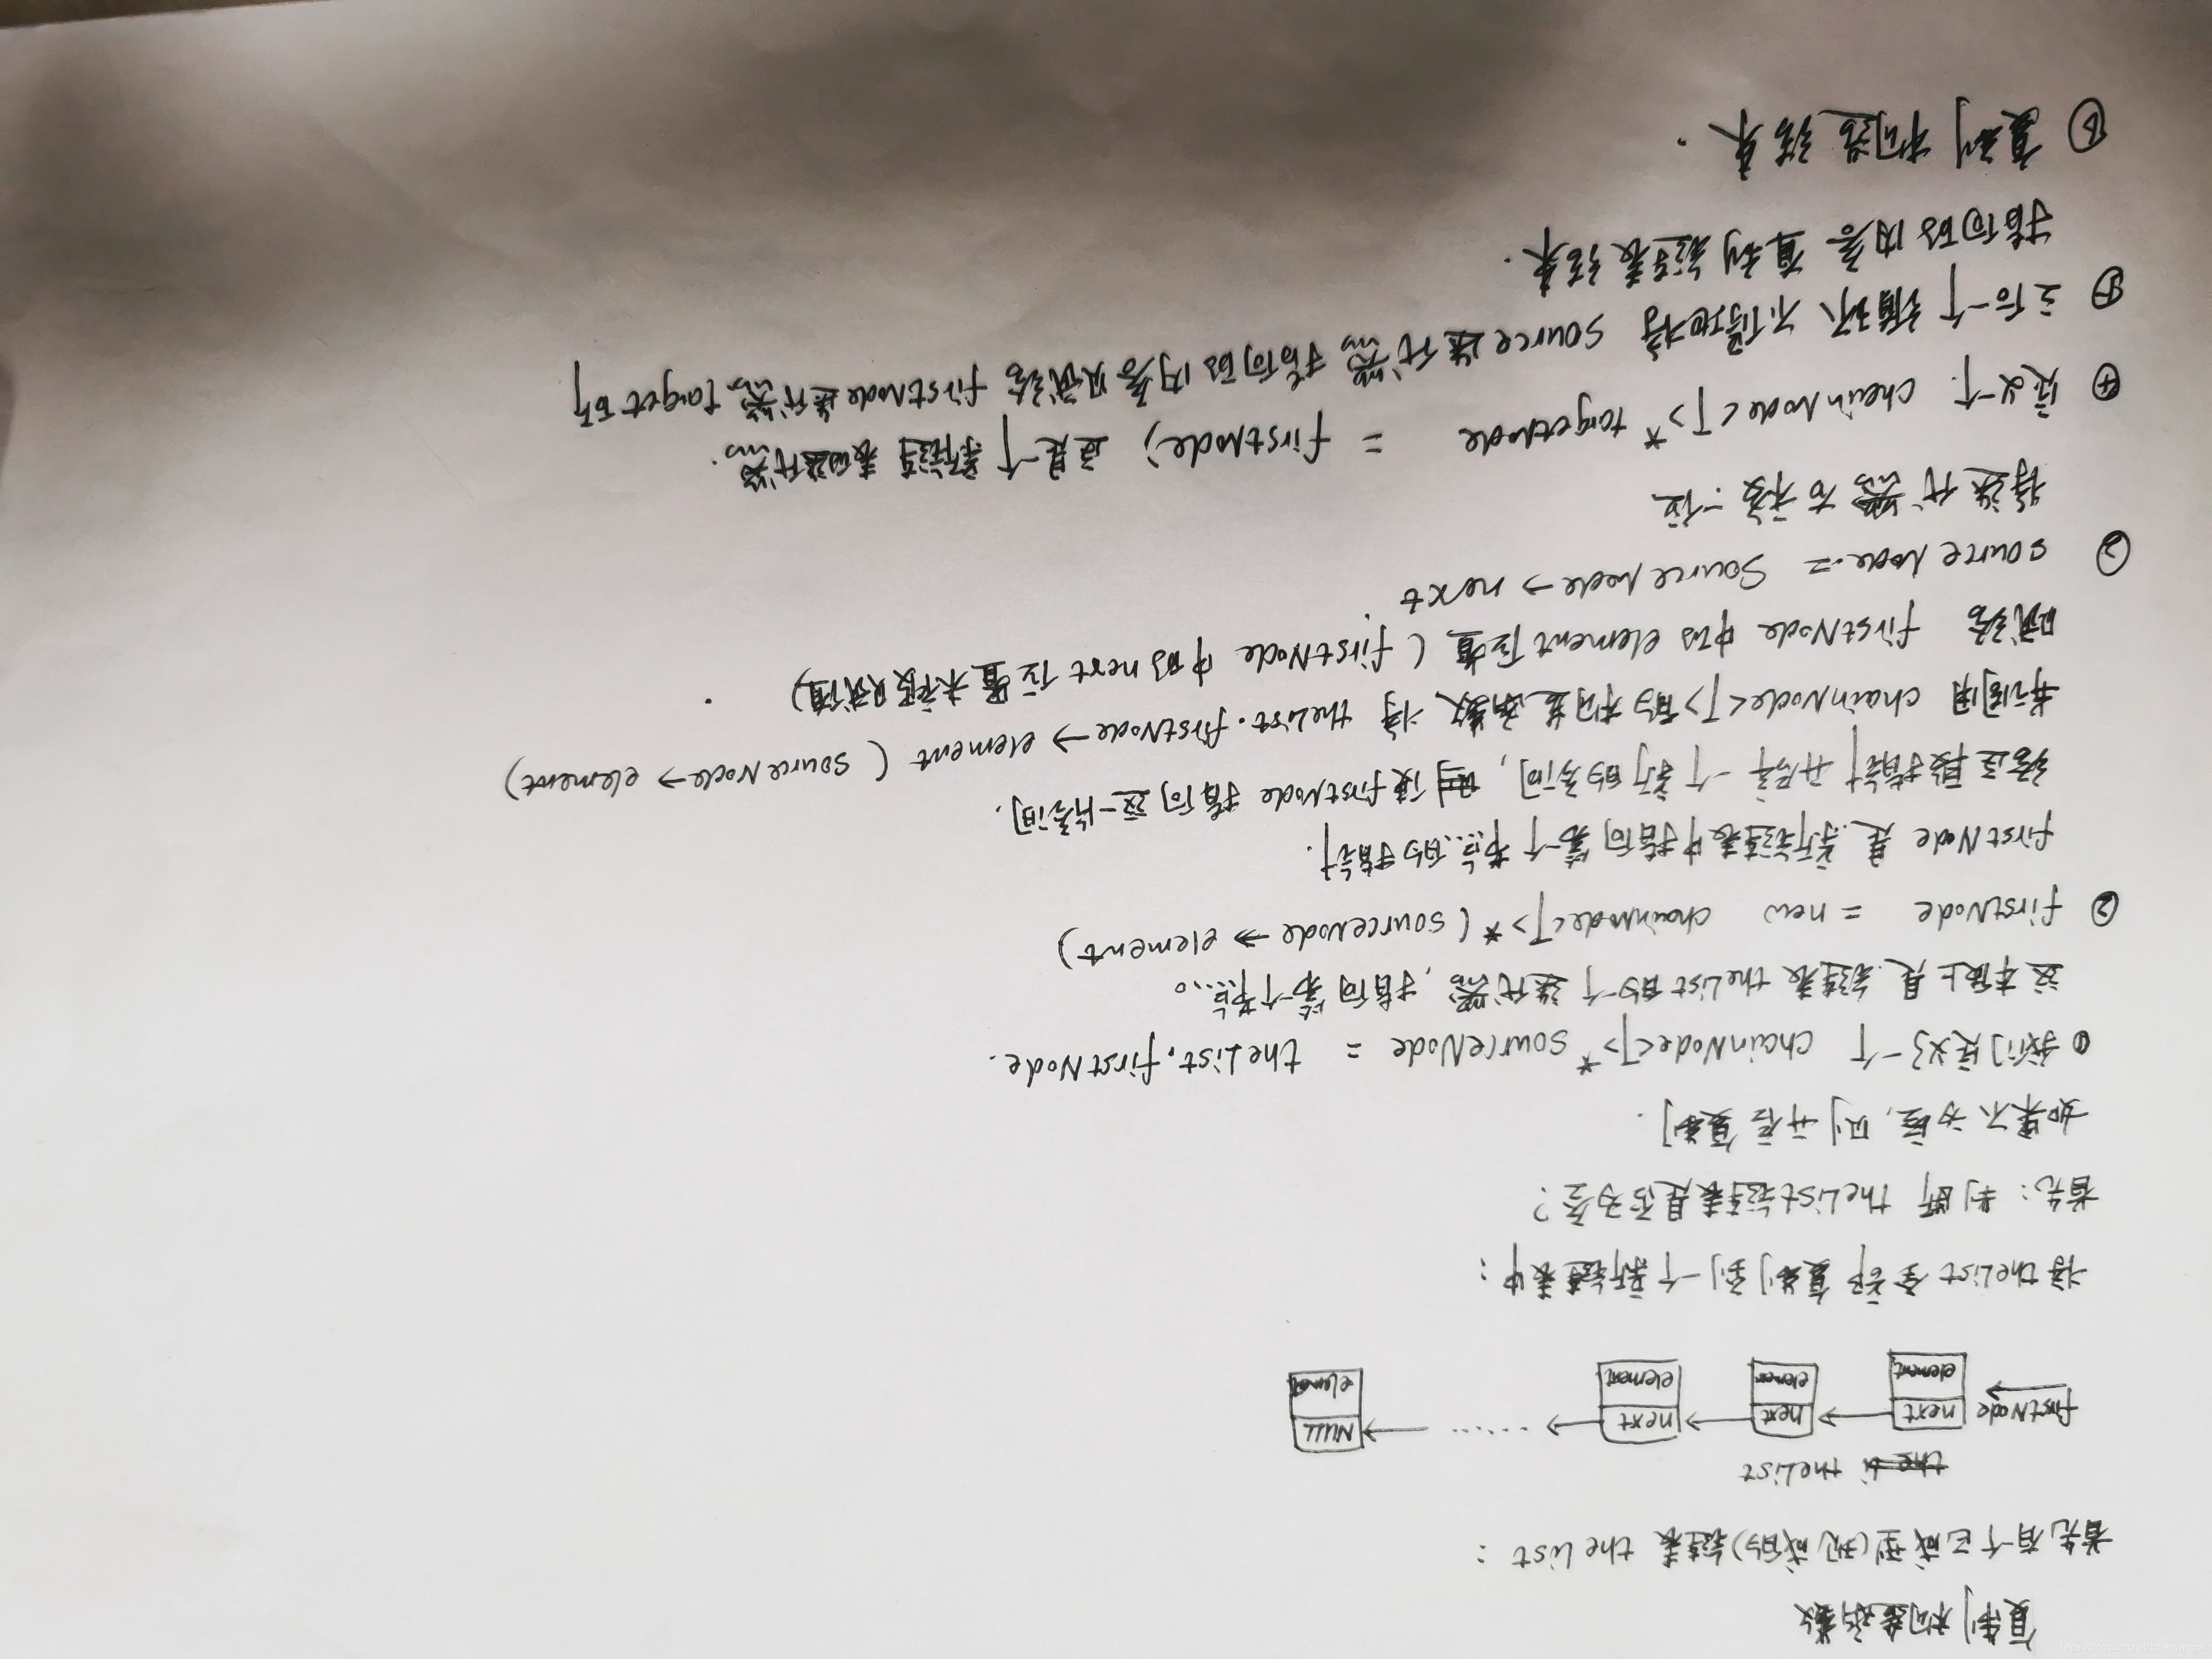 复制构造函数
首先有一个已成型(现成的)链表 theList :
theList
firstNode next next next ...... NULL
element element element element
将theList全部复制到一个新链表中:
首先:判断 theList链表是否为空?
如果不为空,则开启复制.
① 我们定义了一个 chainNode<T>* sourceNode = theList.firstNode.
这本质上是链表theList的一个迭代器,指向第一个节点。
② firstNode = new chainNode<T>* (sourceNode → element)
firstNode 是新链表中指向第一个节点的指针.
给这段指针开辟一个新的空间, 使firstNode 指向这一片空间.
并调用 chainNode<T>的构造函数 将 theList.firstNode → element ( sourceNode → element)
赋给 firstNode 中的 element位置 ( firstNode 中的next位置未被赋值) .
③ sourceNode = sourceNode → next
将迭代器右移一位
④ 定义一个 chainNode<T>* targetNode = firstNode; 这是一个新链表的迭代器.
⑤ 之后一个循环不停地将 source迭代器指向的内容赋给 firstNode迭代器 target所
指向的内容 直到链表结束.
复制构造结束.